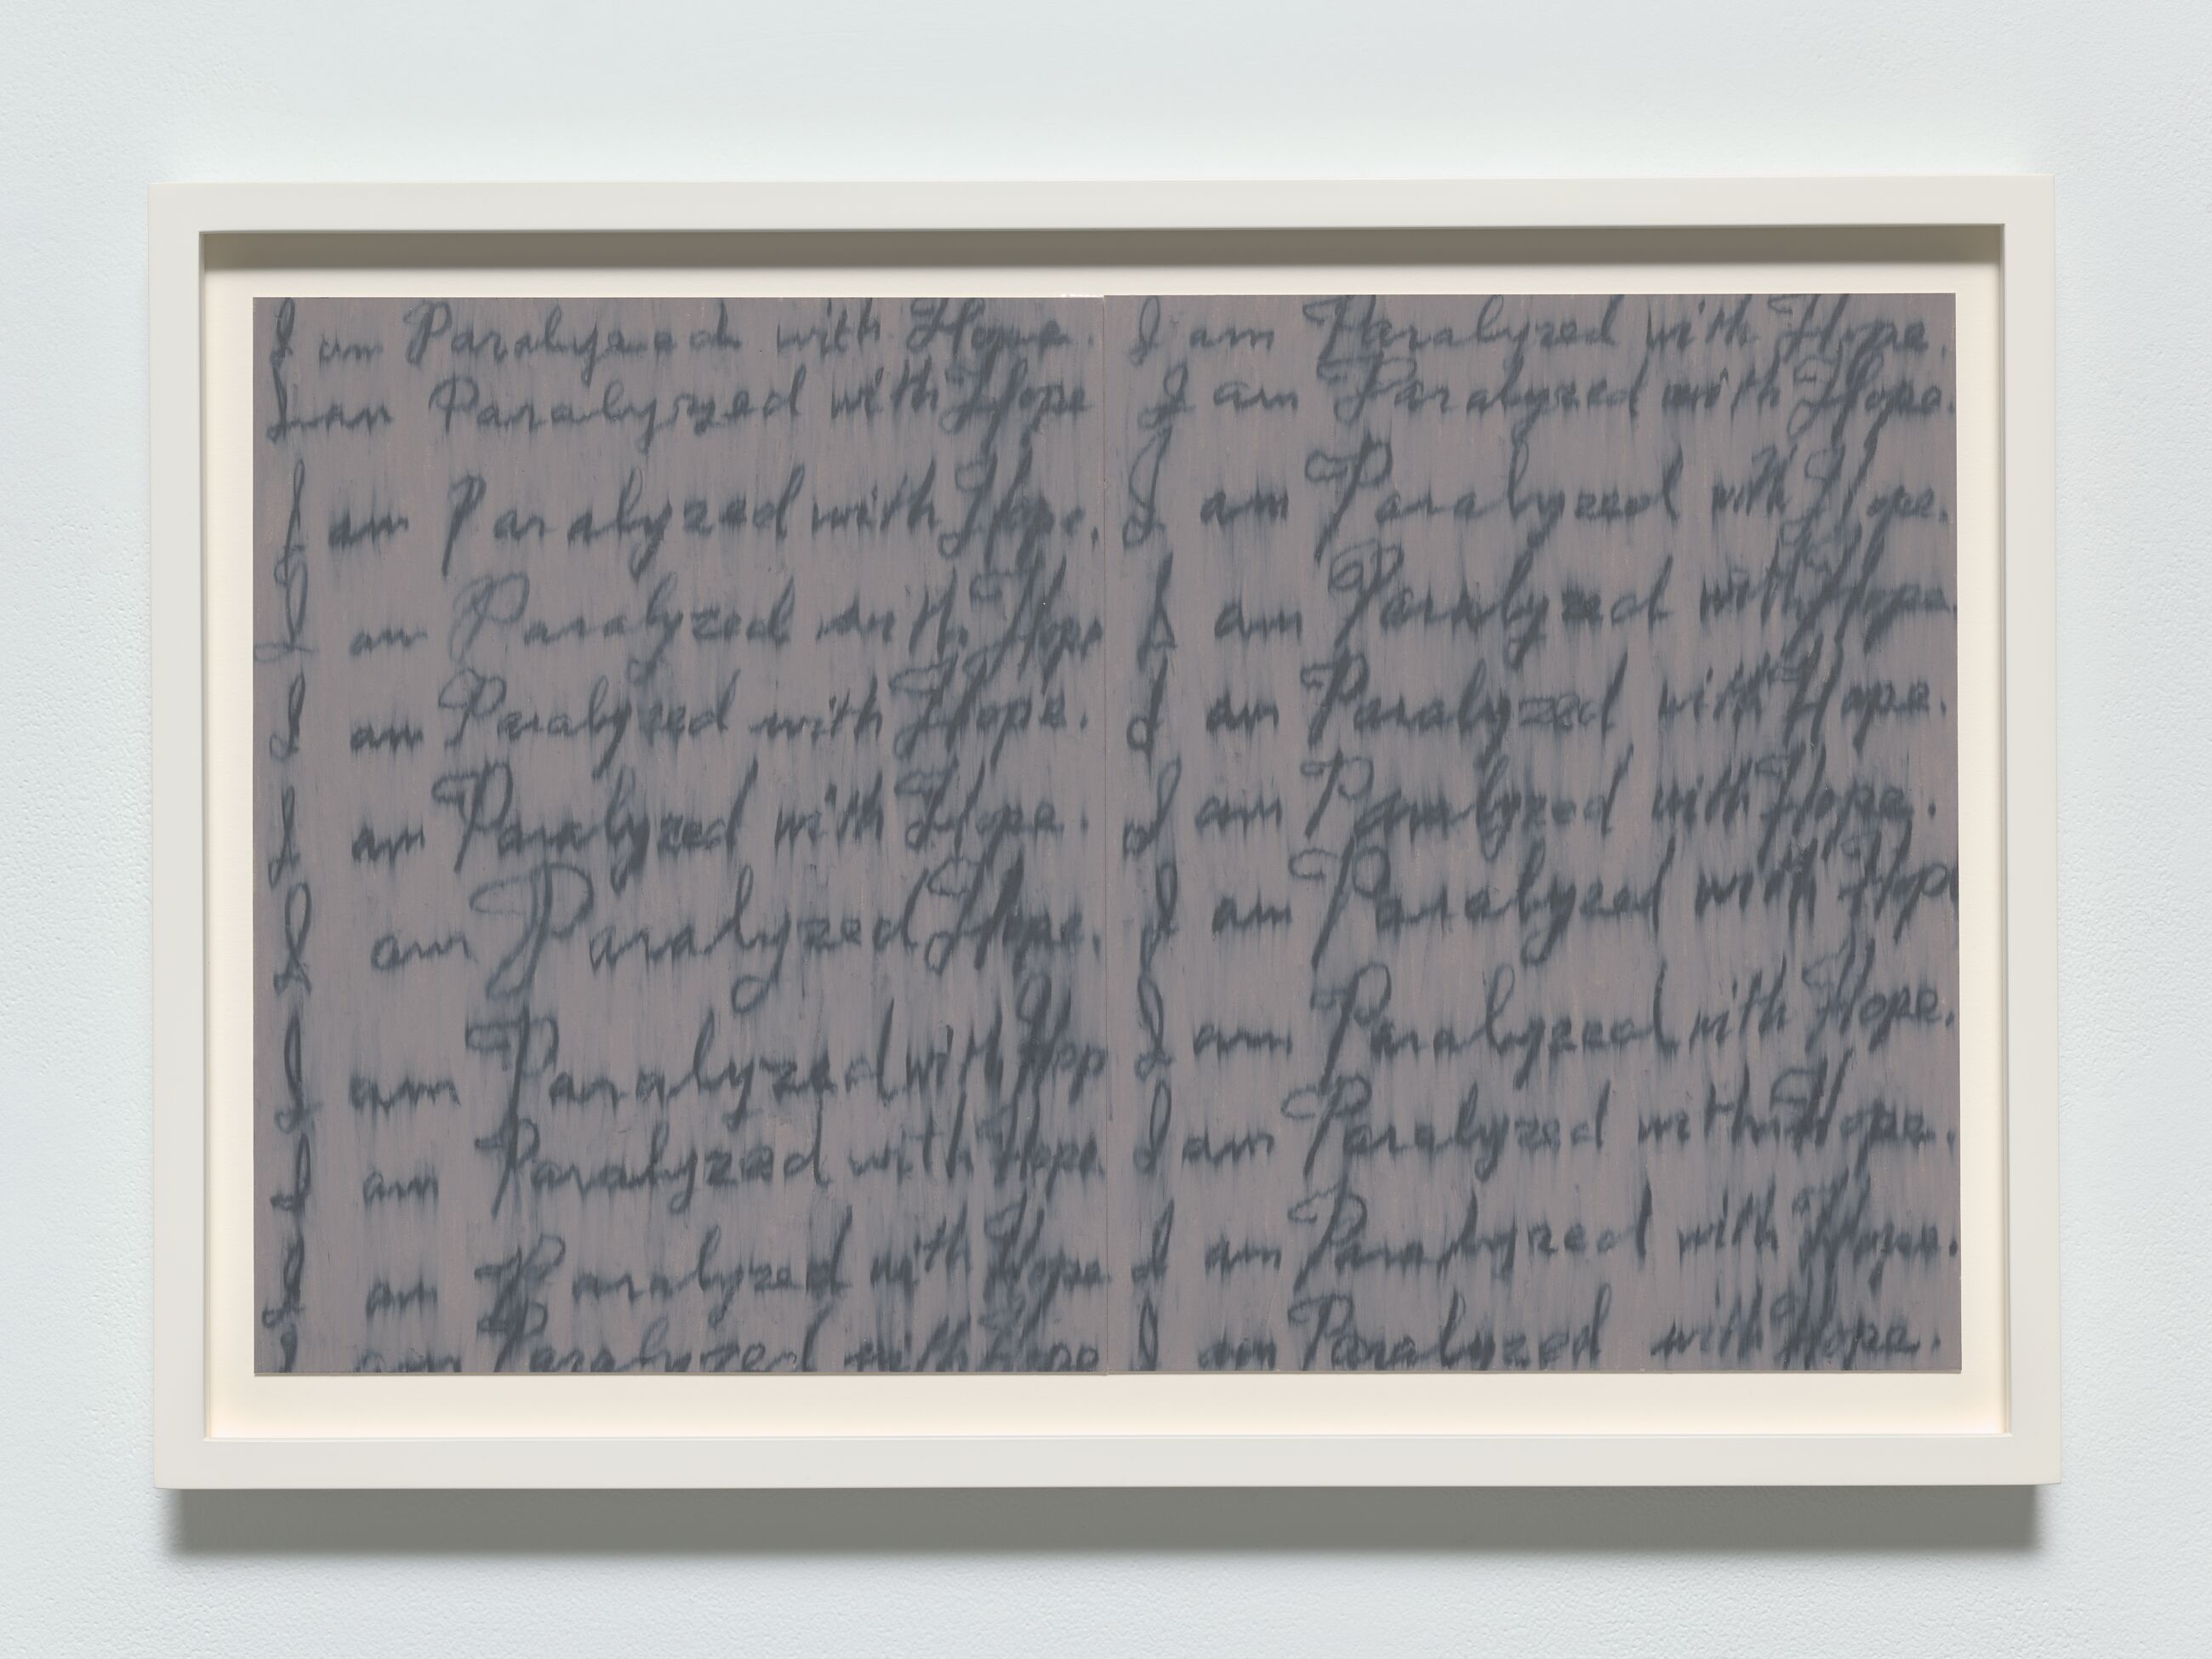 I am Paralyzed with Hope.
I am Paralyzed with Hope
I am Paralyzed with Hope.
I am Paralyzed with Hope
I am Paralyzed with Hope.
I am Paralyzed with Hope.
I am Paralyzed Hope.
I am Paralyzed with Hop
I am Paralyzed with Hope
I am Paralyzed with Hope
I am Paralyzed with hope
I am Paralyzed with Hope.
I am Paralyzed with Hope.
I am Paralyzed with Hope.
I am Paralyzed with Hope.
I am Paralyzed with Hope.
I am Paralyzed with Hope.
I am Paralyzed with Hop
I am Paralyzed with Hope.
I am Paralyzed with Hope.
I am Paralyzed with Hope.
I am Paralyzed with Hope.